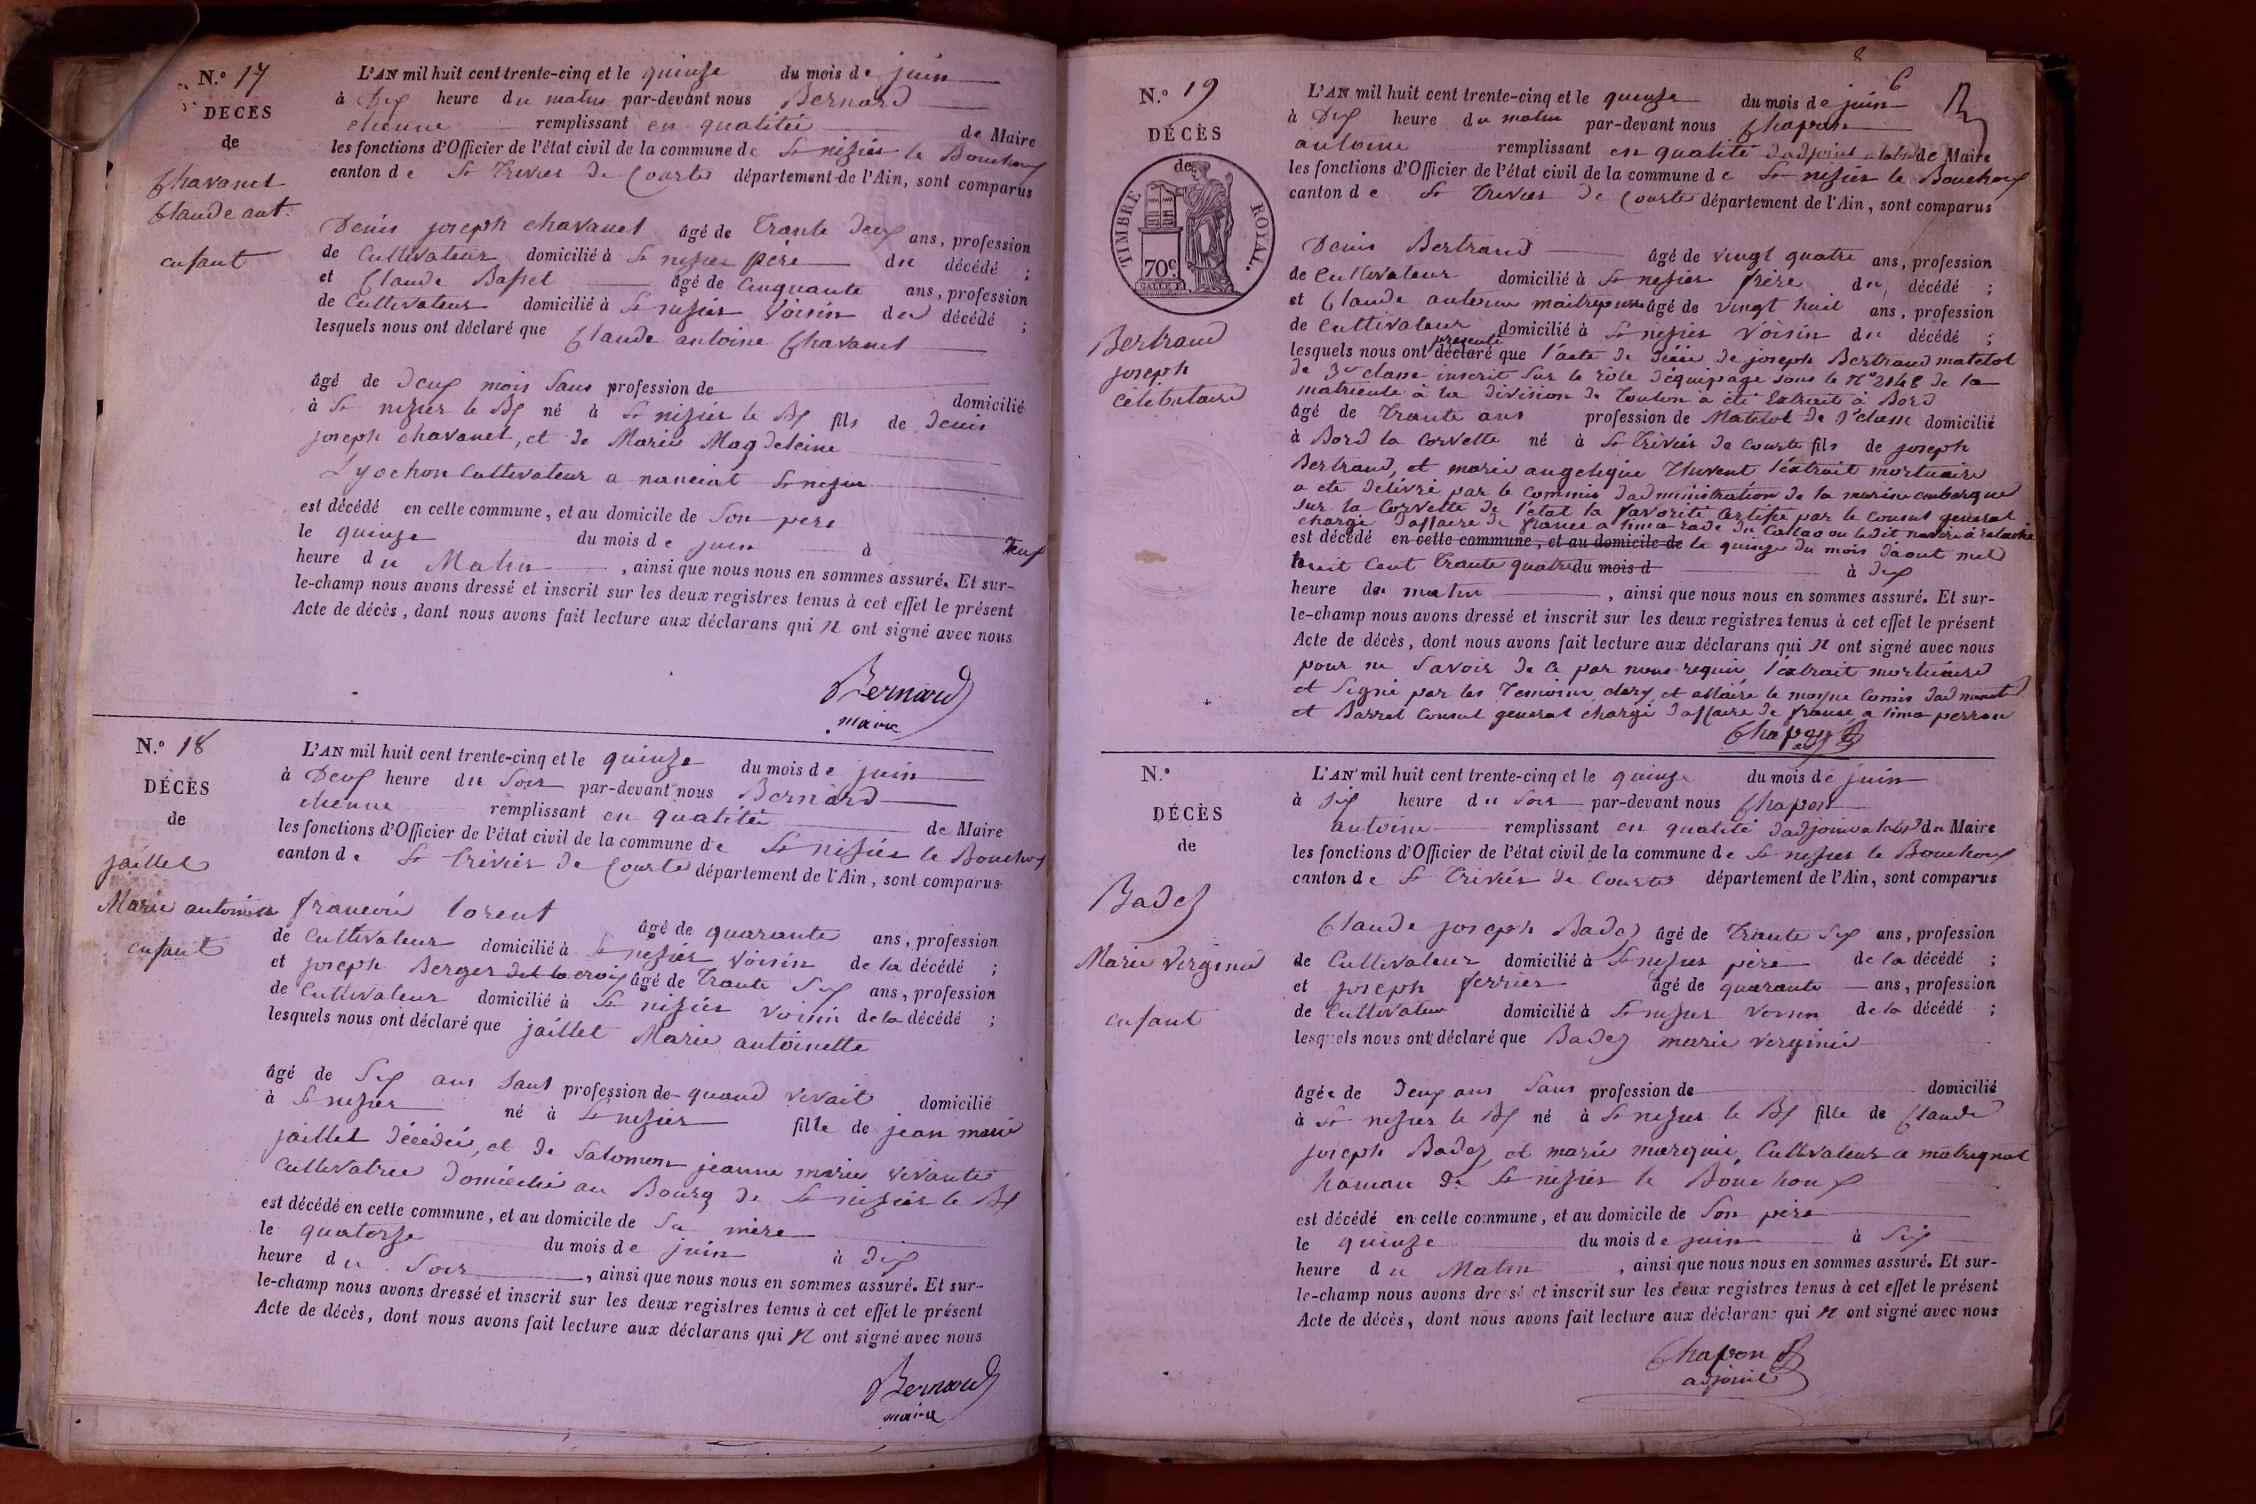 N.º 17
DÉCÈS
de
Chavanet
Claude ant.
enfant
L'AN mil huit cent trente-cinq et le quinze du mois de juin
à Dix heure du matin par-devant nous Bernard
etienne remplissant en qualitée de Maire
les fonctions d'Officier de l'état civil de la commune de St nizier le Bouchoux
canton de St Trivier de Courtes département de l'Ain, sont comparus
Denis joseph chavanet âgé de trante deux ans, profession
de Cultivateur domicilié à St nizier père du décédé ;
et Claude Basset âgé de Cinquante ans, profession
de Cultivateur domicilié à St nizier Voisin du décédé ;
lesquels nous ont déclaré que Claude antoine Chavanet
âgé de deux mois Sans profession de domicilié
à St nizier le Bx né à St nizier le Bx fils de denis
joseph chavanet, et de Marie Magdeleine
cultivateur a St nizier
est décédé en cette commune, et au domicile de Son pere
le quinze du mois de juin à
heure du Matin, ainsi que nous nous en sommes assuré. Et sur-
le-champ nous avons dressé et inscrit sur les deux registres tenus à cet effet le présent
Acte de décès, dont nous avons fait lecture aux déclarans qui n ont signé avec nous
Bernard
maire
N.º 18
DÉCÈS
de
jaillet
Marie antoinette
enfant
L'AN mil huit cent trente-cinq et le quinze du mois de juin
à Deux heure du Soir par-devant nous Bernard
etienne remplissant en qualitée de Maire
les fonctions d'Officier de l'état civil de la commune de St nizier le Bouchoux
canton de St trivier de Courtes département de l'Ain, sont comparus
francois lorent âgé de quarante ans, profession
de Cultivateur domicilié à St nizier voisin de la décédé ;
et joseph Berger dit la croix âgé de trante Six ans, profession
de Cultivateur domicilié à St nizier voisin de la décédé ;
lesquels nous ont déclaré que jaillet Marie antoinette
âgé de Six ans Sans profession de quand vivait domicilié
à St nizier né à St nizier fille de jean marie
jaillet décédée, et de Salomon jeanne marie vivante
Cultivatrice domiciliée au Bourg de St nizier le Bx
est décédé en cette commune, et au domicile de Sa mère
le quatorze du mois de juin à dix
heure du Soir, ainsi que nous nous en sommes assuré. Et sur-
le-champ nous avons dressé et inscrit sur les deux registres tenus à cet effet le présent
Acte de décès, dont nous avons fait lecture aux déclarans qui n ont signé avec nous
Bernard
maire
8
6
N.º 19
DÉCÈS
de
TIMBRE ROYAL.
70c.
Bertrand
joseph
célibataire
L'AN mil huit cent trente-cinq et le quinze du mois de juin
à Dix heure du matin par-devant nous Chapon
antoine remplissant en qualité dadjoint de Maire
les fonctions d'Officier de l'état civil de la commune de St nizier le Bouchoux
canton de St trivier de Courtes département de l'Ain, sont comparus
Denis Bertrand âgé de vingt quatre ans, profession
de Cultivateur domicilié à St nizier frère du décédé ;
et Claude antoine âgé de vingt huit ans, profession
de Cultivateur domicilié à St nizier Voisin du décédé ;
présenté
lesquels nous ont déclaré que l'acte de décés de joseph Bertrand matelot
de 3e classe inscrit Sur le role déquipage sous le No 2148 de la
matricule à la division de toulon a été Extrait à Bord
âgé de trante ans profession de Matelot de 3e classe domicilié
à Bord la Corvette né à St trivier de courte fils de joseph
Bertrand, et marie angelique l'extrait mortuaire
a eté delivré par le commis dadministration de la marine embarqué
Sur la Corvette de l'état la favorite Certifié par le Consul general
chargé d'affaire de france a lima rade du Callao ou ledit navire
est décédé en cette commune, et au domicile de le quinze du mois daout mil
huit Cent trante quatre du mois d à dix
heure du matin, ainsi que nous nous en sommes assuré. Et sur-
le-champ nous avons dressé et inscrit sur les deux registres tenus à cet effet le présent
Acte de décès, dont nous avons fait lecture aux déclarans qui n ont signé avec nous
pour ne Savoir de ce par nous requis l'extrait mortuaire
et Signé par les temoins
et Barret Consul general chargé daffaire de france a lima
Chapon
N.º
DÉCÈS
de
Badez
Marie Verginie
enfant
L'AN mil huit cent trente-cinq et le quinze du mois de juin
à Six heure du Soir par-devant nous Chapon
antoine remplissant en qualité dadjoint du Maire
les fonctions d'Officier de l'état civil de la commune de St nizier le Bouchoux
canton de St trivier de Courtes département de l'Ain, sont comparus
Claude joseph Badez âgé de trante Six ans, profession
de Cultivateur domicilié à St nizier père de la décédé ;
et joseph ferrier âgé de quarante ans, profession
de Cultivateur domicilié à St nizier voisin de la décédé ;
lesquels nous ont déclaré que Badez marie verginie
âgée de deux ans Sans profession de domicilié
à St nizier le Bx né à St nizier le Bx fille de Claude
joseph Badez et marie marquis, Cultivateur a
hameau de St nizier le Bouchoux
est décédé en cette commune, et au domicile de Son père
le quinze du mois de juin à Six
heure du Matin, ainsi que nous nous en sommes assuré. Et sur-
le-champ nous avons dressé et inscrit sur les deux registres tenus à cet effet le présent
Acte de décès, dont nous avons fait lecture aux déclarans qui n ont signé avec nous
Chapon
adjoint